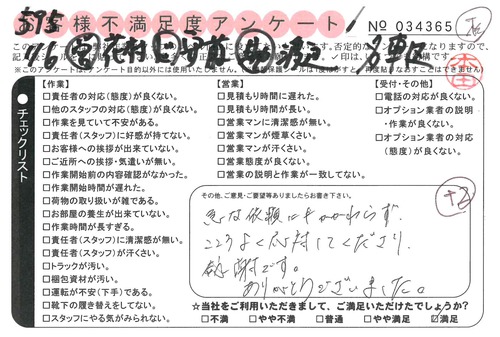 お客様不満足度アンケート
No 034365
※このアンケートは
チェックリスト
【作業】
□責任者の対応(態度)が良くない。
□他のスタッフの対応(態度)が良くない。
□作業を見ていて不安がある。
□責任者(スタッフ)に好感が持てない。
□お客様への挨拶が出来ていない。
□ご近所への挨拶・気遣いが無い。
□作業開始前の内容確認がなかった。
□作業開始時間が遅れた。
□荷物の取り扱いが雑である。
□お部屋の養生が出来ていない。
□作業時間が長すぎる。
□責任者(スタッフ)に清潔感が無い。
□責任者(スタッフ)が汗くさい。
□トラックが汚い。
□梱包資材が汚い。
□運転が不安(下手)である。
□靴下の履き替えをしてない。
□スタッフにやる気がみられない。
【営業】
□見積もり時間に遅れた。
□見積もり時間が長い。
□営業マンに清潔感が無い。
□営業マンが煙草くさい。
□営業マンが汗くさい。
□営業態度が良くない。
□営業の説明と作業が一致してない。
【受付・その他】
□電話の対応が良くない。
□オプション業者の説明
・作業が良くない。
□オプション業者の対応
(態度)が良くない。
その他、ご意見・ご要望等ありましたらお書き下さい。
急な依頼にもかかわらず、
こころよく応対してくださり
感謝です。
ありがとうございました。
+2
☆当社をご利用いただきまして、ご満足いただけたでしょうか?
□不満 □やや不満 □普通 □やや満足 □満足